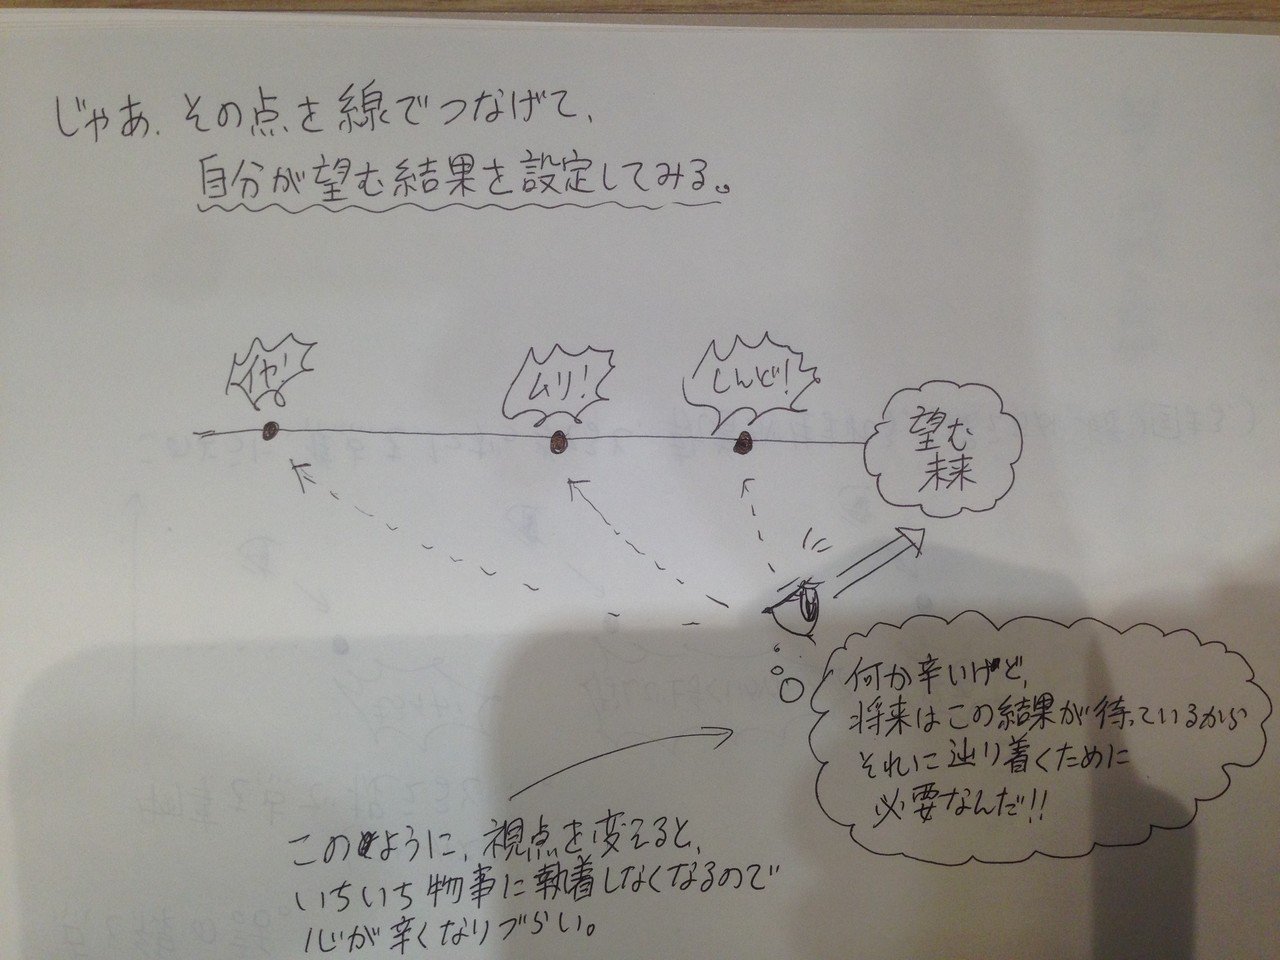 じゃあ、その点を線でつなげて、
自分が望む結果を設定してみる。
イヤ!
ムリ!
しんど!
望む
未来
何か辛いけど、
将来はこの結果が待っているから
それに辿り着くために
必要なんだ!!
このように、視点を変えると、
いちいち物事に執着しなくなるので
心が辛くなりづらい。